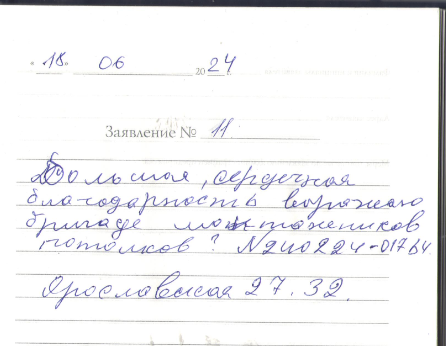 "18" 06 2024 г.
Заявление № 11
Большая, сердечная
благодарность выражаю
бригаде монтажников
потолков? N240224-01764
Ярославская 27. 32.